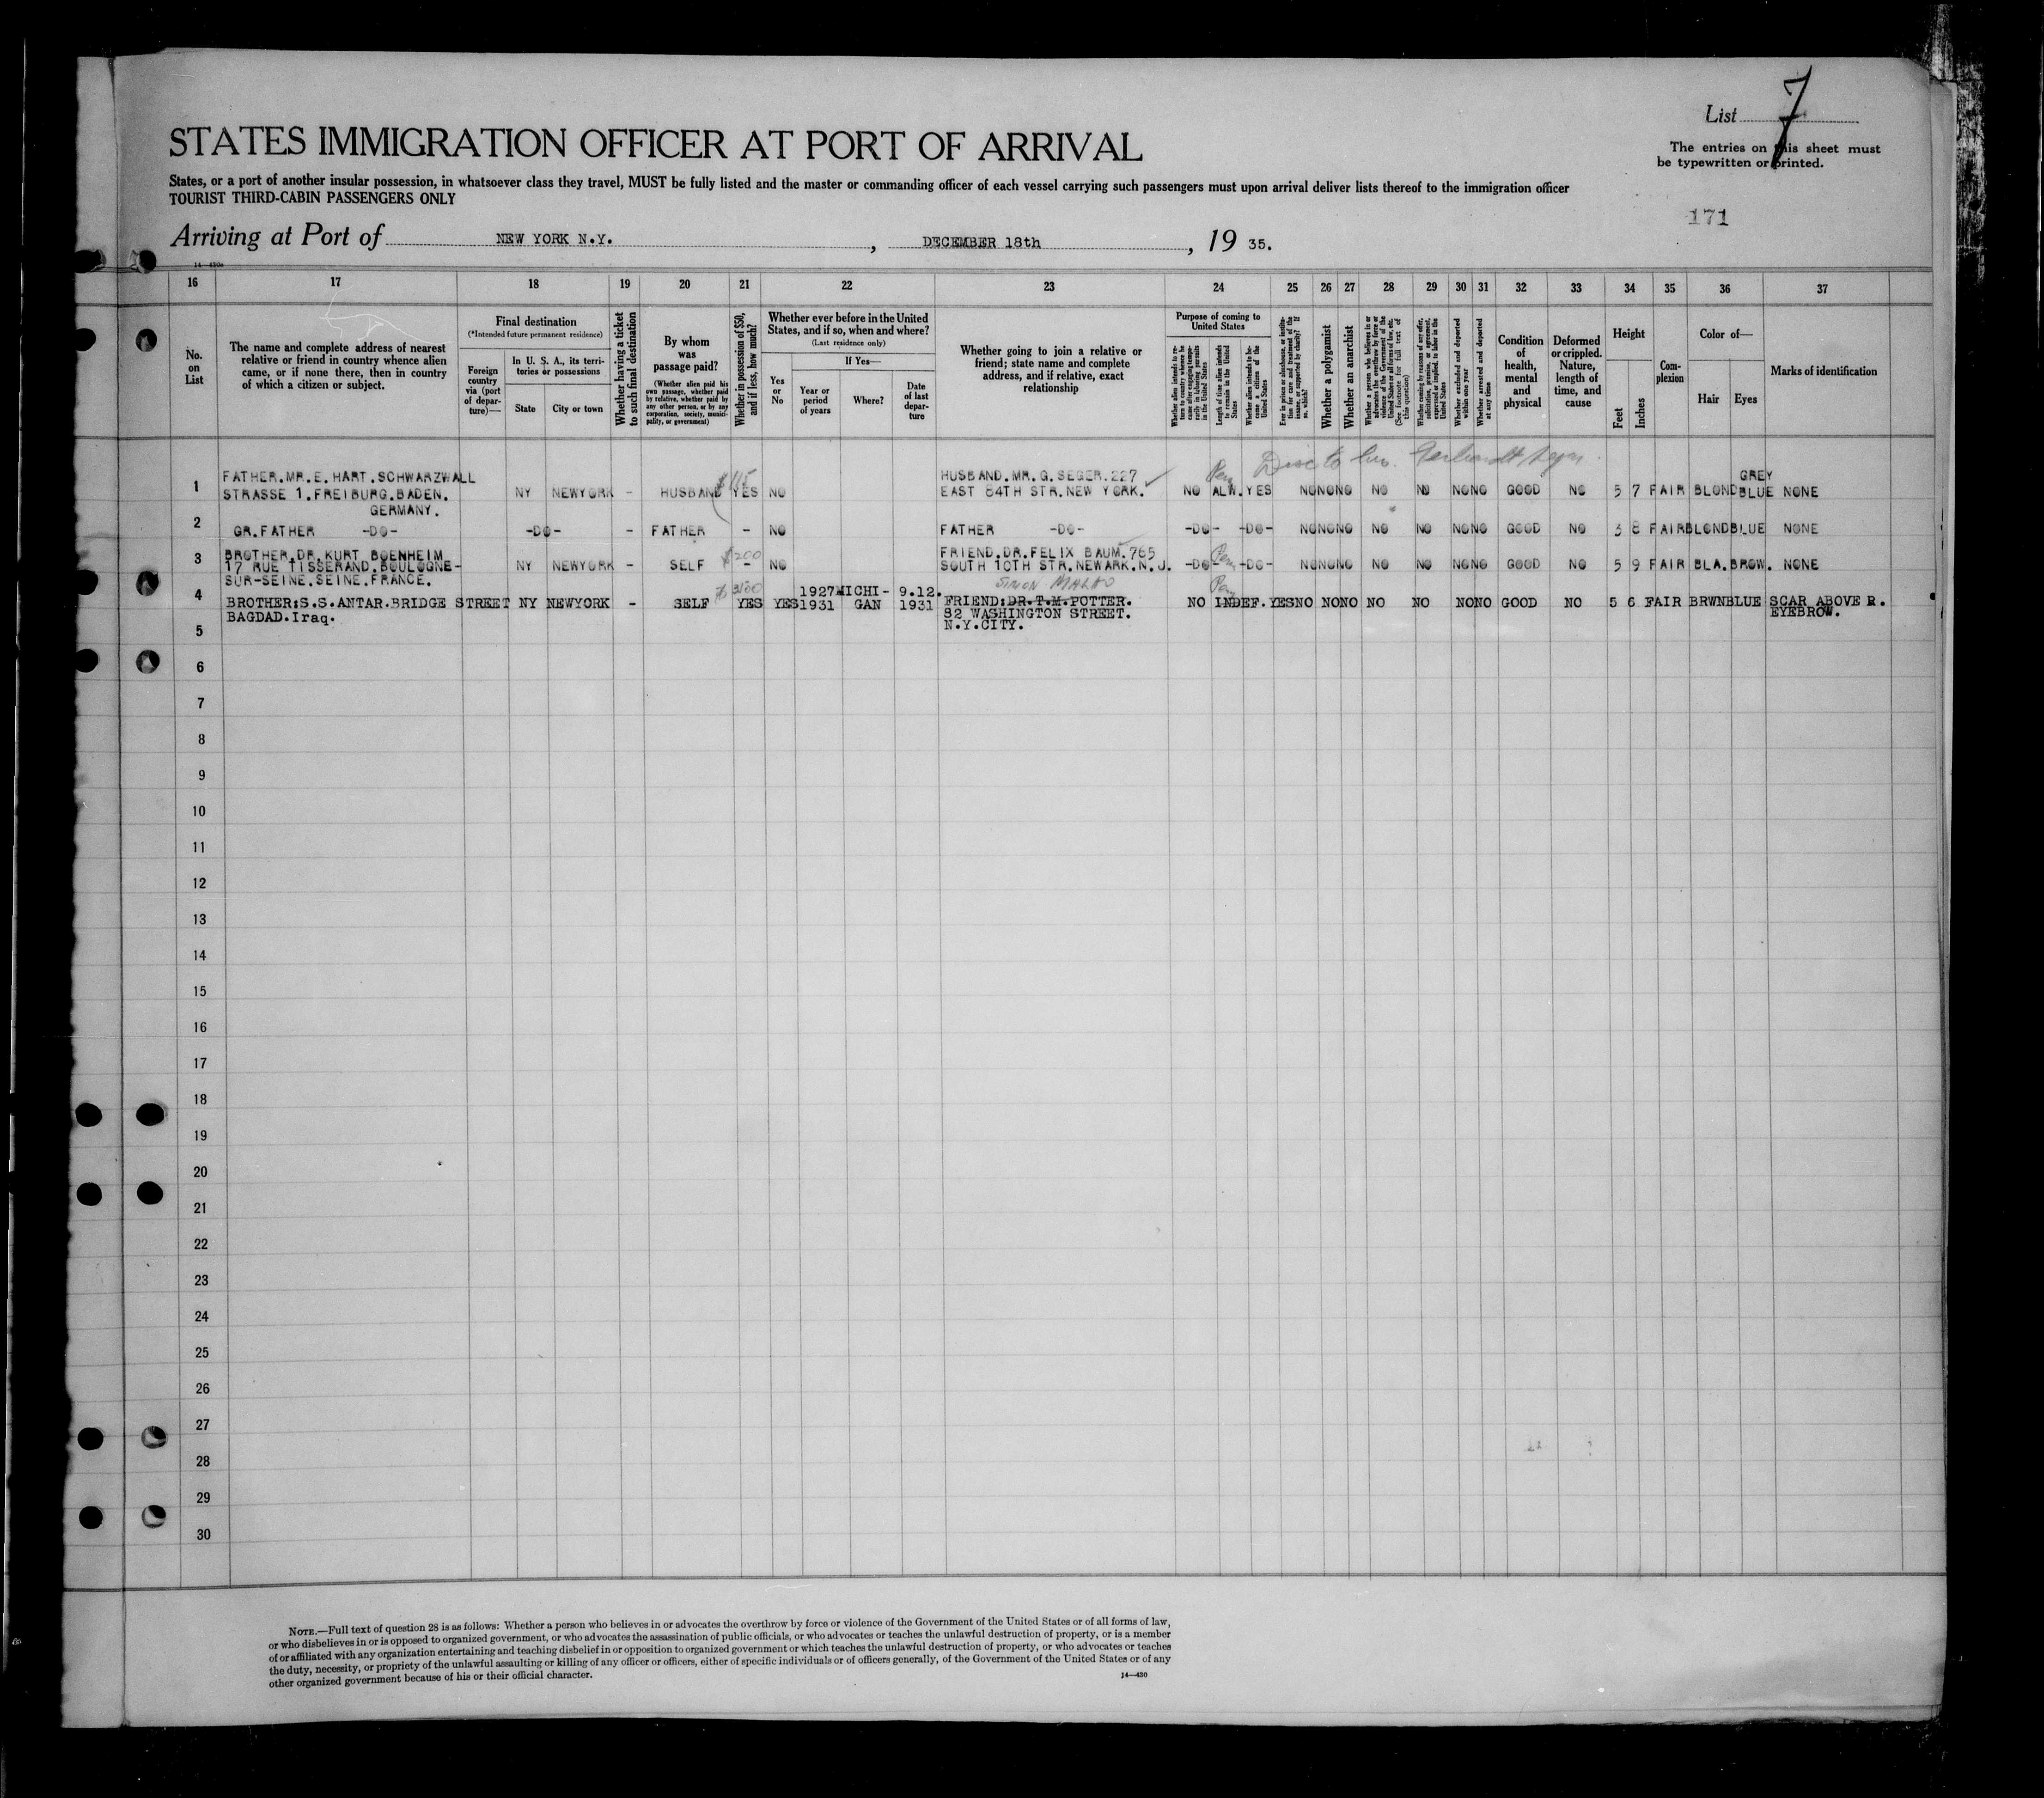 List 7
STATES IMMIGRATION OFFICER AT PORT OF ARRIVAL
The entries on this sheet must
be typewritten or printed.
States, or a port of another insular possession, in whatsoever class they travel, MUST be fully listed and the master or commanding officer of each vessel carrying such passengers must upon arrival deliver lists thereof to the immigration officer
TOURIST THIRD-CABIN PASSENGERS ONLY
171
Arriving at Port of NEW YORK N.Y. , DECEMBER 18th , 19 35.
14—430a
16 17 18 19 20 21 22 23 24 25 26 27 28 29 30 31 32 33 34 35 36 37
No.
on
List
The name and complete address of nearest
relative or friend in country whence alien
came, or if none there, then in country
of which a citizen or subject.
Final destination
(*Intended future permanent residence)
Foreign
country
via (port
of depar-
ture)—
In U. S. A., its terri-
tories or possessions
State
City or town
Whether having a ticket
to such final destination
By whom
was
passage paid?
(Whether alien paid his
own passage, whether paid
by relative, whether paid by
any other person, or by any
corporation, society, munici-
pality, or government)
Whether in possession of $50,
and if less, how much?
Whether ever before in the United
States, and if so, when and where?
(Last residence only)
Yes
or
No
If Yes—
Year or
period
of years
Where?
Date
of last
depar-
ture
Whether going to join a relative or
friend; state name and complete
address, and if relative, exact
relationship
Purpose of coming to
United States
Whether alien intends to re-
turn to country whence he
came after engaging tempo-
rarily in laboring pursuits
in the United States
Length of time alien intends
to remain in the United
States
Whether alien intends to be-
come a citizen of the
United States
Ever in prison or almshouse, or institu-
tion for care and treatment of the
insane, or supported by charity? If
so, which?
Whether a polygamist
Whether an anarchist
Whether a person who believes in or
advocates the overthrow by force or
violence of the Government of the
United States or all forms of law, etc.
(See footnote for full text of
this question)
Whether coming by reasons of any offer,
solicitation, promise, or agreement,
expressed or implied, to labor in the
United States
Whether excluded and deported
within one year
Whether arrested and deported
at any time
Condition
of
health,
mental
and
physical
Deformed
or crippled.
Nature,
length of
time, and
cause
Height
Feet
Inches
Com-
plexion
Color of—
Hair
Eyes
Marks of identification
1 FATHER.MR.E.HART.SCHWARZWALL
STRASSE 1.FREIBURG.BADEN.
GERMANY.
NY NEWYORK - HUSBAND YES NO
HUSBAND.MR.G.SEGER.227
EAST 84TH STR.NEW YORK.
NO ALW. YES NO NO NO NO NO NO NO GOOD NO 5 7 FAIR BLOND GREY
BLUE NONE
2 GR.FATHER -DO- -DO- - FATHER - NO FATHER -DO- -DO- -DO- NO NO NO NO NO NO NO GOOD NO 3 8 FAIR BLOND BLUE NONE
3 BROTHER.DR.KURT BOENHEIM
17 RUE TISSERAND.BOULOGNE-
SUR-SEINE.SEINE.FRANCE.
NY NEWYORK - SELF $200 - NO
FRIEND.DR.FELIX BAUM.765
SOUTH 10TH STR.NEWARK.N.J.
-DO- -DO- NO NO NO NO NO NO NO GOOD NO 5 9 FAIR BLA. BROW. NONE
4 BROTHER:S.S.ANTAR.BRIDGE STREET
BAGDAD.Iraq.
NY NEWYORK - SELF YES YES 1927
1931 MICHI-
GAN 9.12.
1931
SIMON MALKO
FRIEND:DR.T.M.POTTER.
82 WASHINGTON STREET.
N.Y.CITY.
NO INDEF. YES NO NO NO NO NO NO NO GOOD NO 5 6 FAIR BRWN BLUE SCAR ABOVE R.
EYEBROW.
5
6
7
8
9
10
11
12
13
14
15
16
17
18
19
20
21
22
23
24
25
26
27
28
29
30
NOTE.—Full text of question 28 is as follows: Whether a person who believes in or advocates the overthrow by force or violence of the Government of the United States or of all forms of law,
or who disbelieves in or is opposed to organized government, or who advocates the assassination of public officials, or who advocates or teaches the unlawful destruction of property, or is a member
of or affiliated with any organization entertaining and teaching disbelief in or opposition to organized government or which teaches the unlawful destruction of property, or who advocates or teaches
the duty, necessity, or propriety of the unlawful assaulting or killing of any officer or officers, either of specific individuals or of officers generally, of the Government of the United States or of any
other organized government because of his or their official character.
14—430